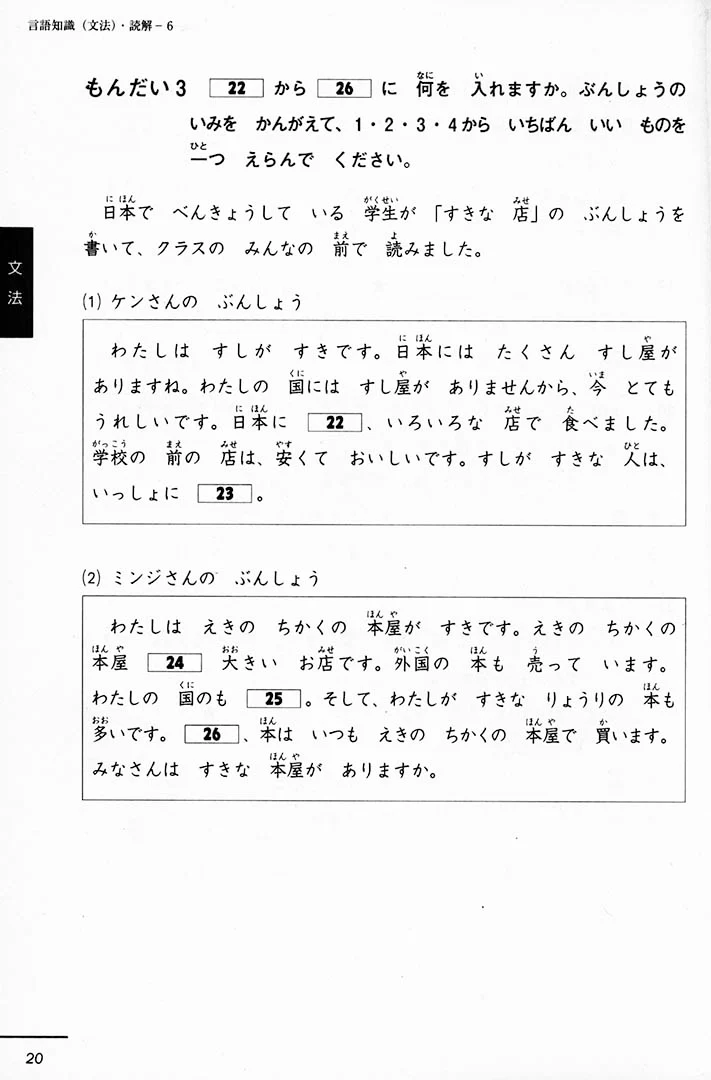 言語知識（文法）・読解－6
もんだい3 22 から 26 に 何を 入れますか。ぶんしょうの
いみを かんがえて、1・2・3・4から いちばん いい ものを
一つ えらんで ください。
日本で べんきょうして いる 学生が 「すきな 店」の ぶんしょうを
書いて、クラスの みんなの 前で 読みました。
文法
(1) ケンさんの ぶんしょう
わたしは すしが すきです。日本には たくさん すし屋が
ありますね。わたしの 国には すし屋が ありませんから、今 とても
うれしいです。日本に 22 、いろいろな 店で 食べました。
学校の 前の 店は、安くて おいしいです。すしが すきな 人は、
いっしょに 23 。
(2) ミンジさんの ぶんしょう
わたしは えきの ちかくの 本屋が すきです。えきの ちかくの
本屋 24 大きい お店です。外国の 本も 売って います。
わたしの 国のも 25 。そして、わたしが すきな りょうりの 本も
多いです。 26 、本は いつも えきの ちかくの 本屋で 買います。
みなさんは すきな 本屋が ありますか。
20